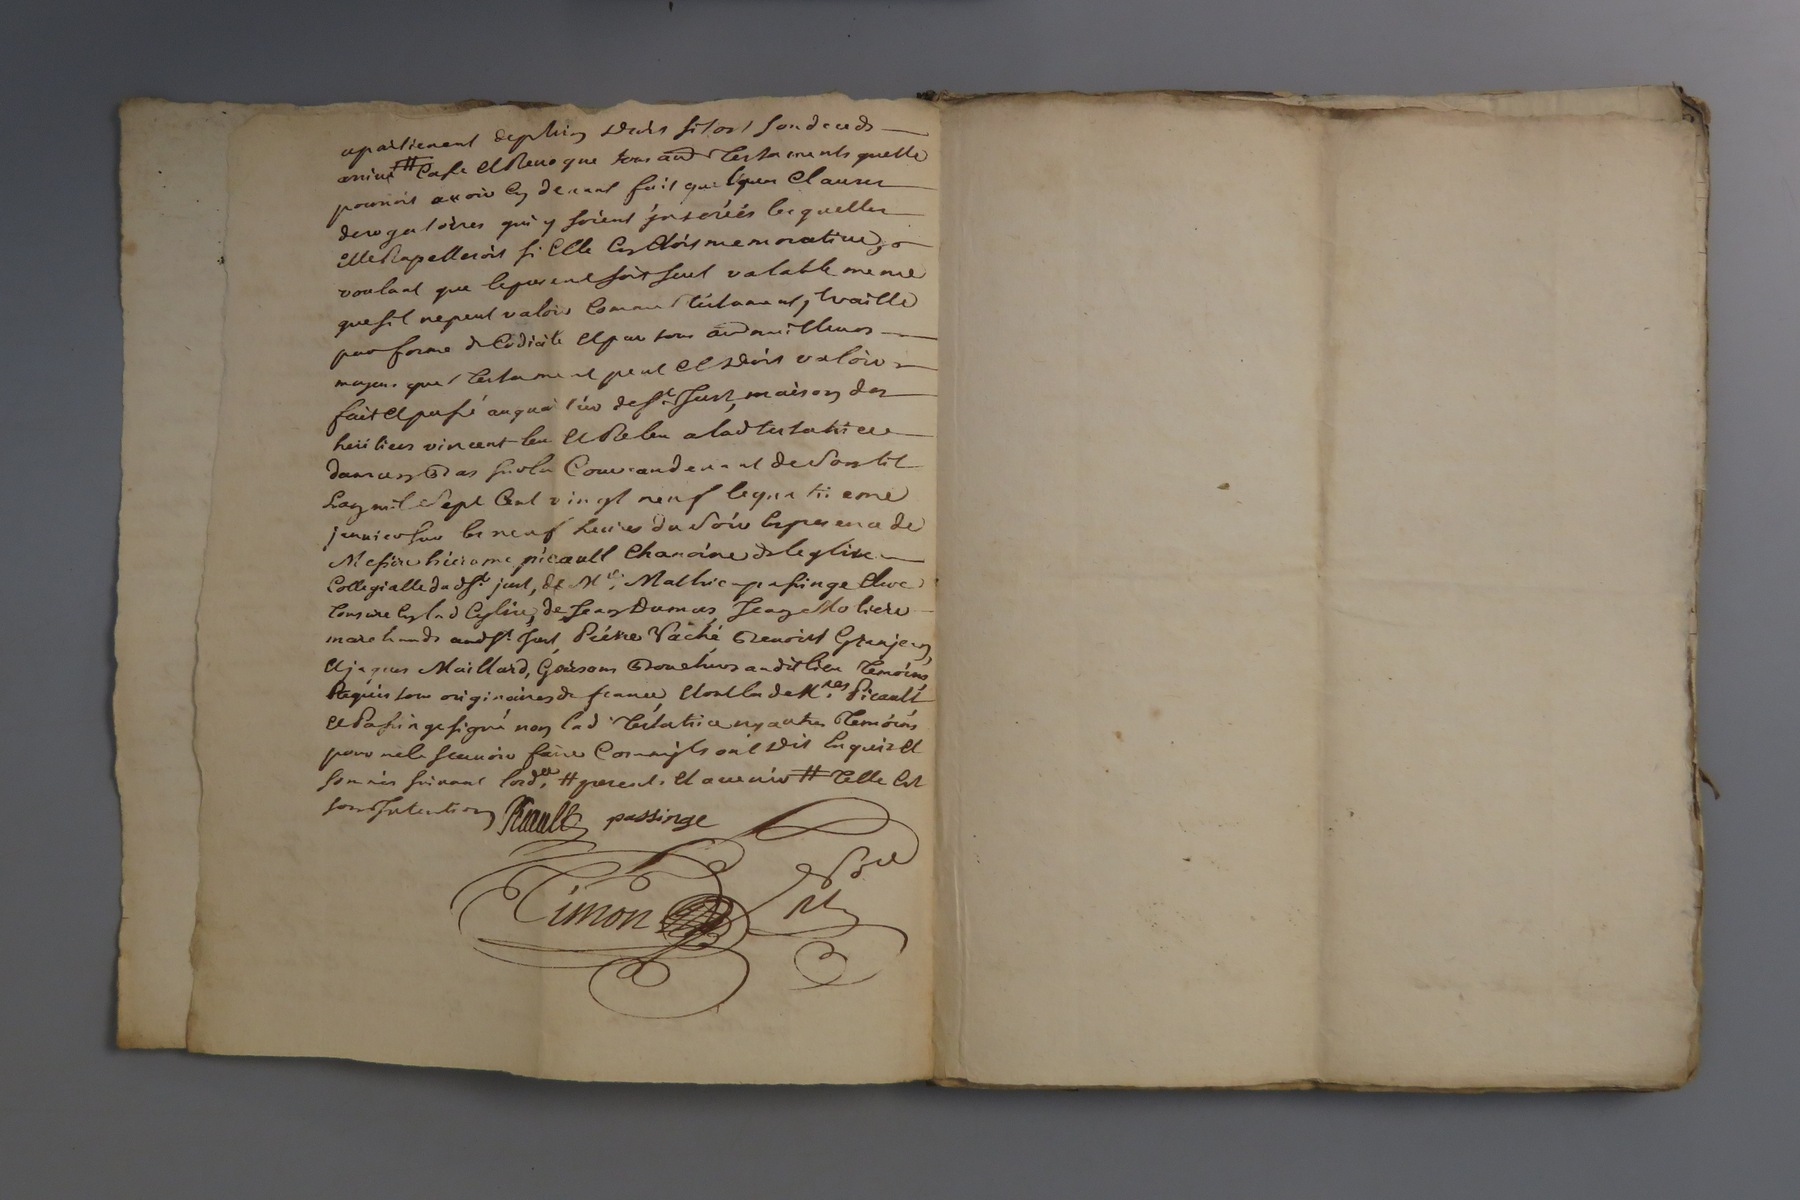 apartienent de plein droit sitost son deceds
arrivé # Casse et Revoque tous autres Testaments quelle
pourroit avoir cy devant fait quelques Clauses
derogatoires qui y soient inserées lesquelles
elle Rapelleroit si Elle En Etoit memorative,
voulant que le present soit seul valable meme
que sil ne peut valoir Comme Testament, Vaille
par forme de Codicile et par tous autres meilleurs
moyens que Testament peut et doit valoir
fait et passé au quartier de St Just, maison des
heritiers vincent leu et Releu a lad Testatrice
dans un Bas sur la Cour au devant de son lit
Lan mil Sept Cent vingt neuf le quatrieme
janvier sur les neuf heures du Soir En presence de
Messire hierome picault Chanoine de leglise
Collegialle dud St just, de Me Mathieu passinge Clerc
Tonsuré En lad Eglise, de Jean Dumas, Jean Moliere
marchands aud St Just, Pierre Vaché Benoist Granjean,
et jaques Maillard, Garsons audit lieu Temoins
Requis tous originaires de france, et ont led Mres Picault
et Passinge signé non lad Testatrice ny autres Temoins
pour ne le scavoir faire Comme ils ont dit Enquis et
sommés suivant lord.ce # presents et avenir # Telle Est
son Intention Picault passinge
Timon